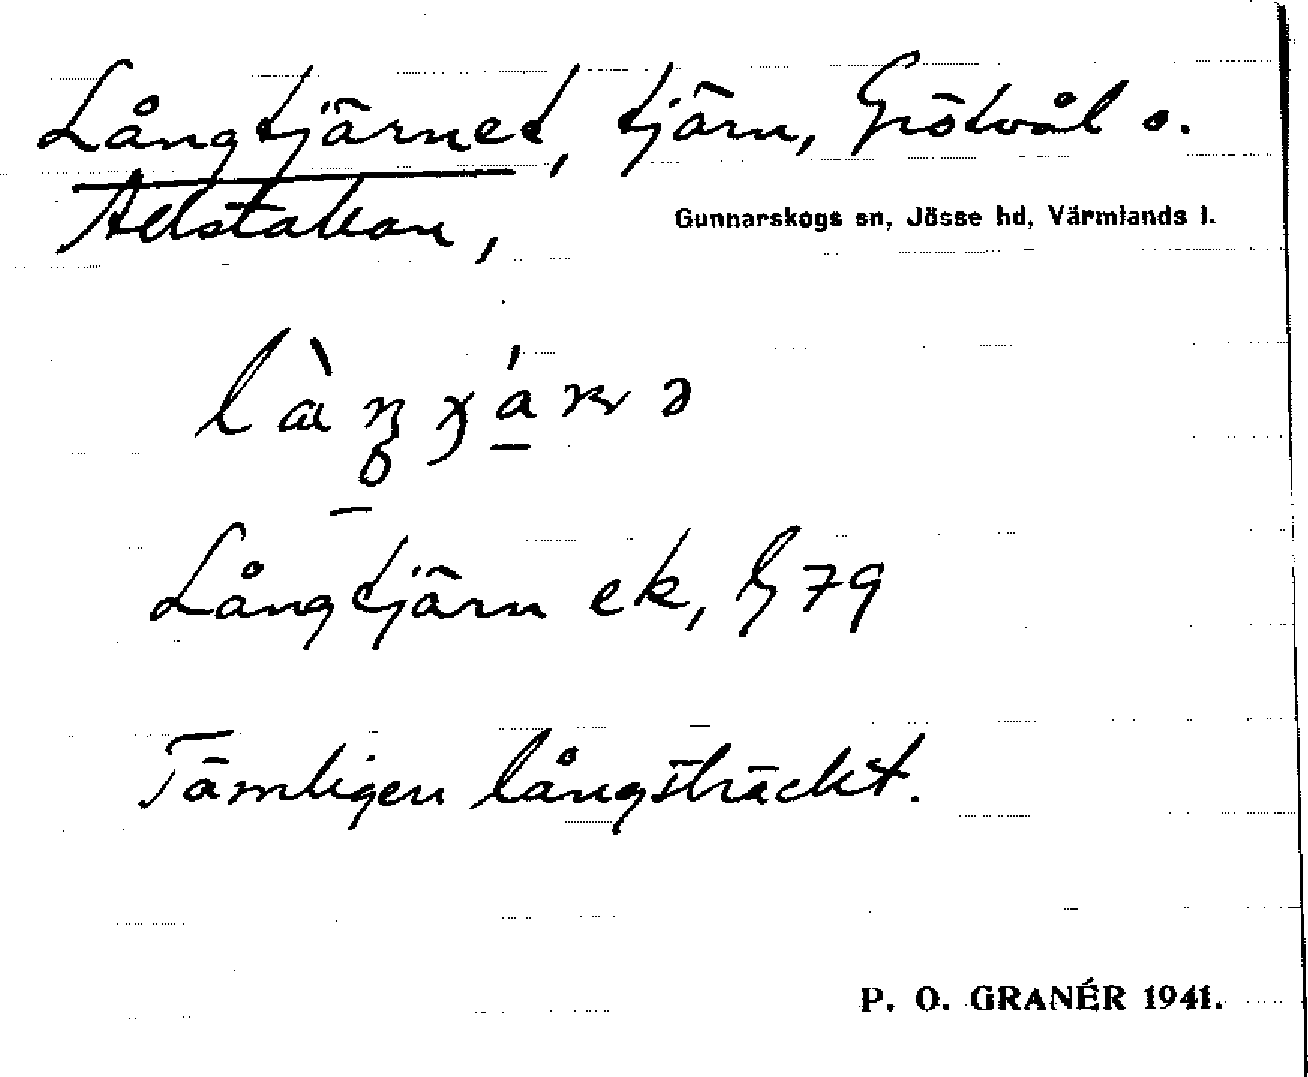 Långtjärnet, tjärn, Grötvål o.
Allstakan,
Gunnarskogs sn, Jösse hd, Värmlands l.
Långtjärn ek, G 79
Tämligen långsträckt.
P. O. GRANÉR 1941.